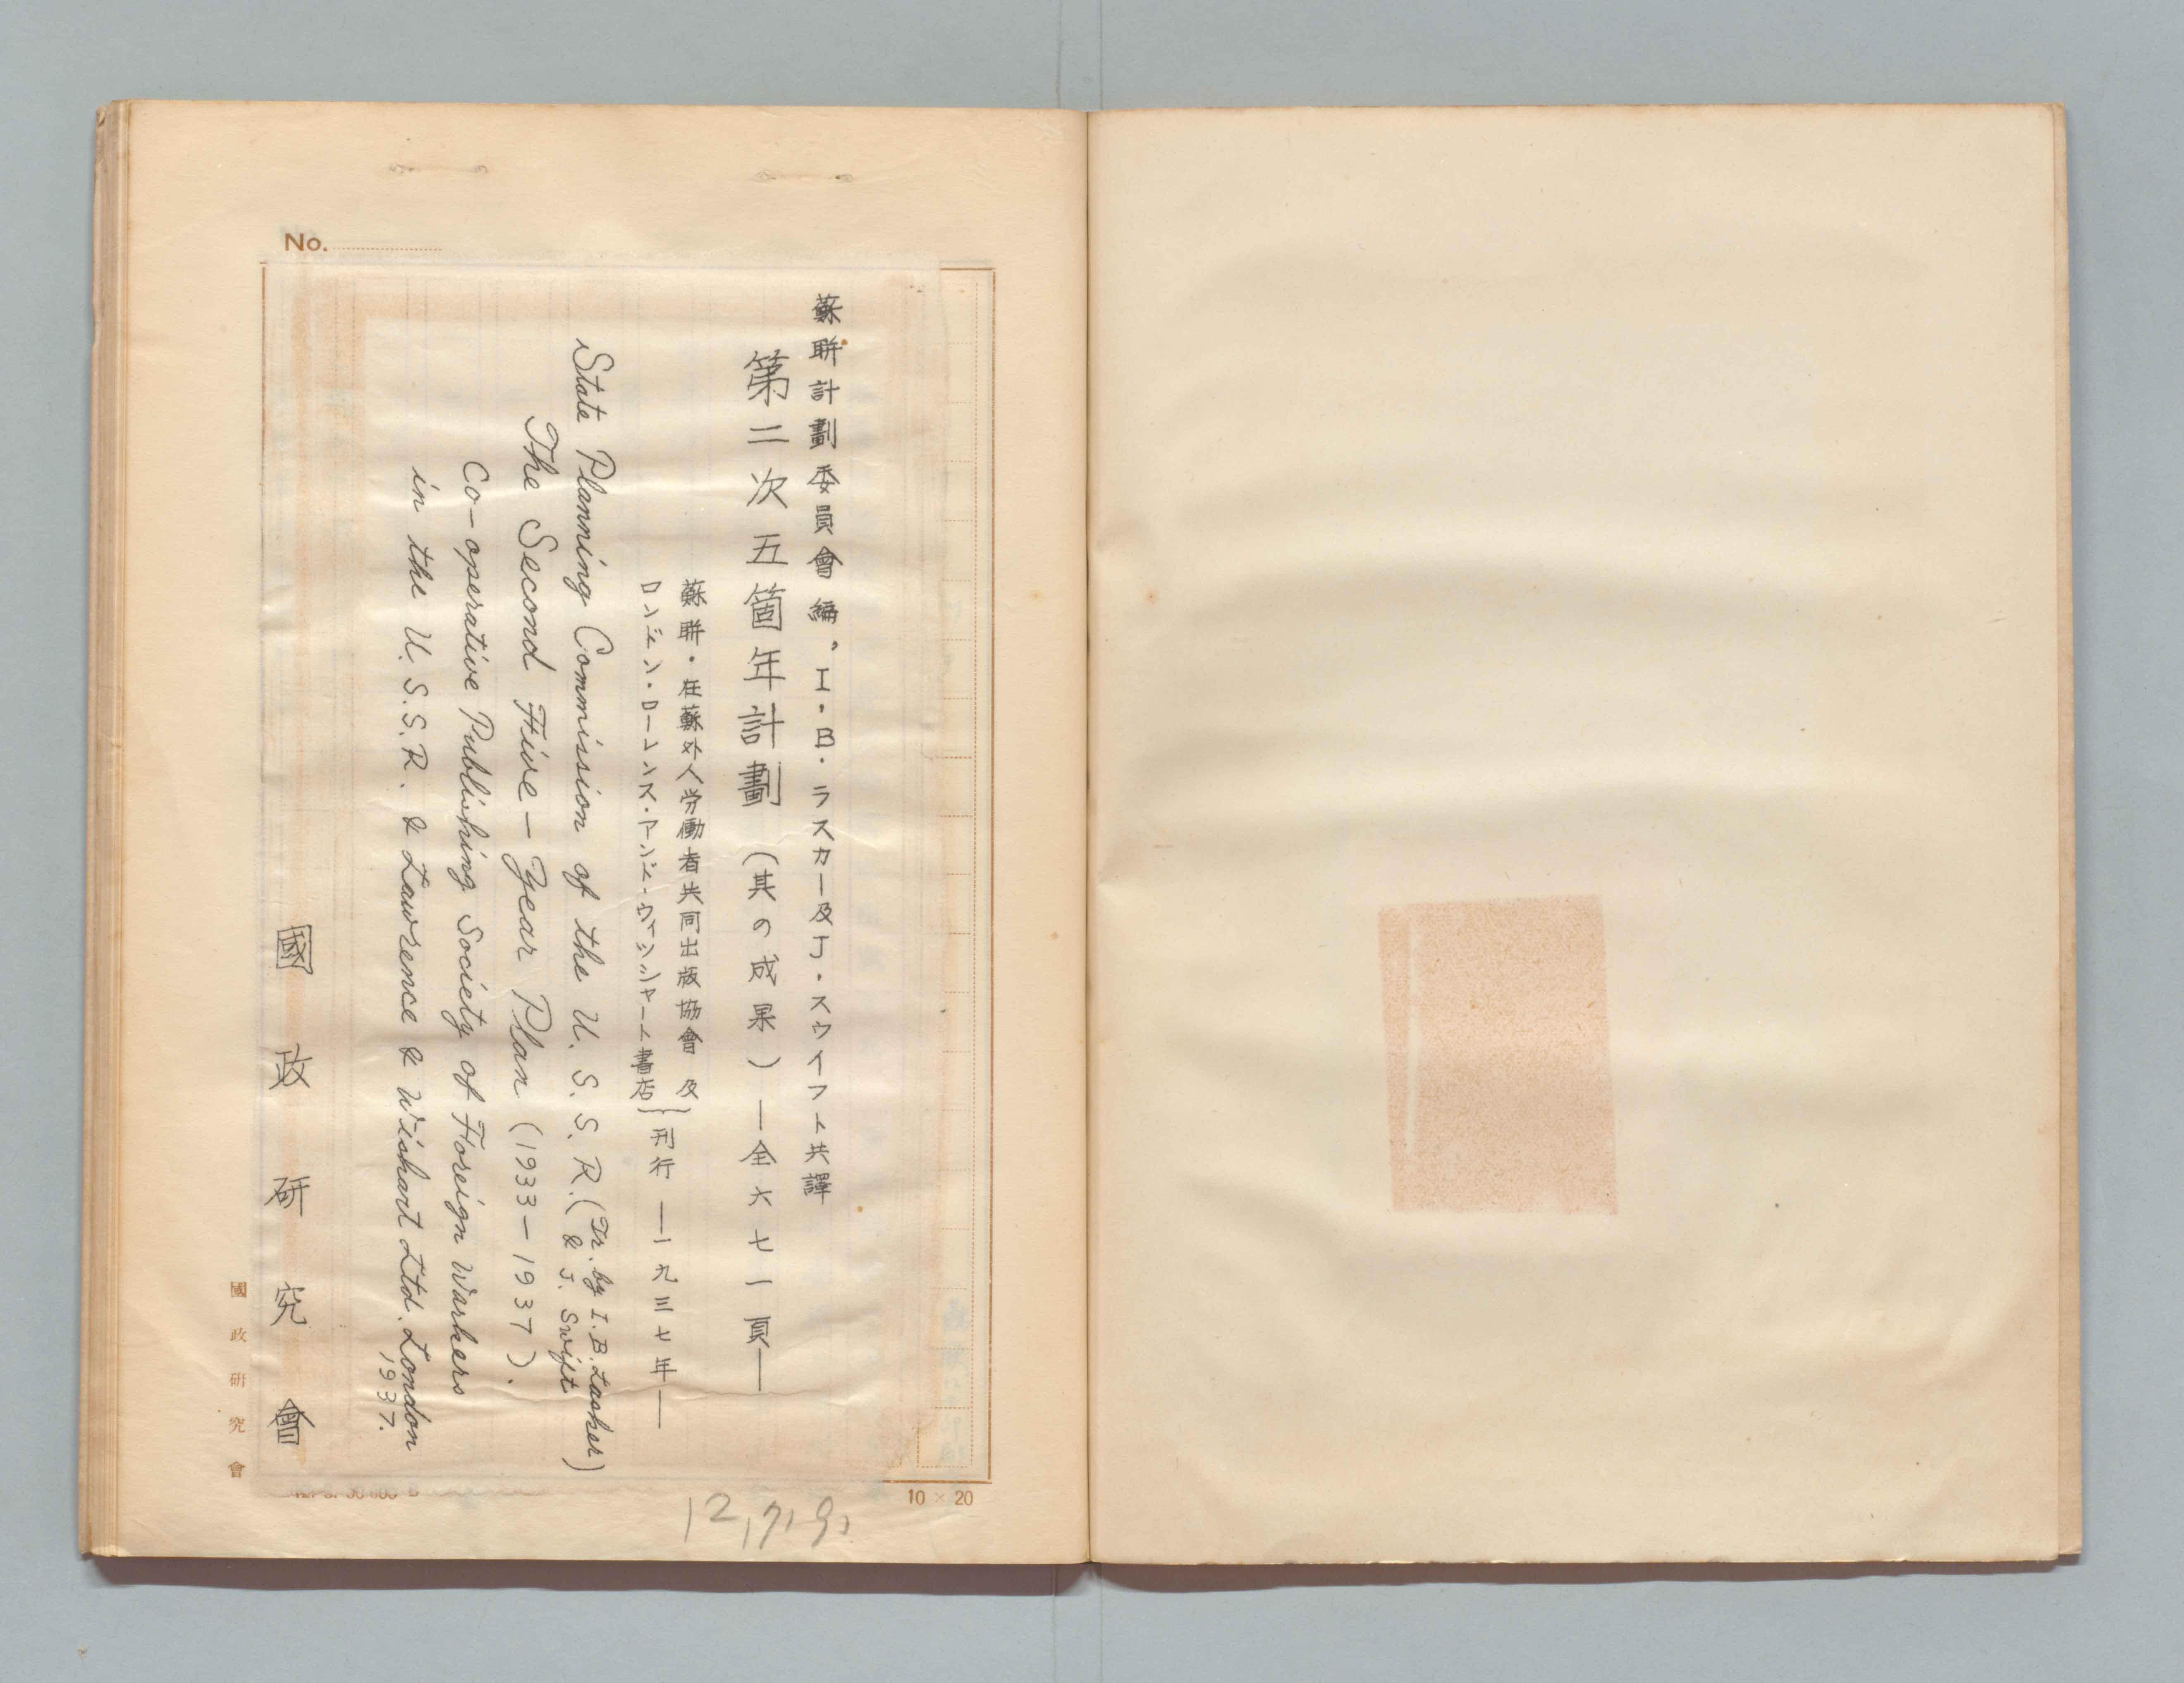 No.
蘇聯計劃委員會編。I・B・ラスカー及J・スウイフト共譯
第二次五箇年計劃(其の成果)—全六七一頁—
蘇聯・在蘇外人労働者共同出版協會 及
ロンドン・ローレンス・アンド・ウィッシャート書店}刊行 —一九三七年—
State Planning Commission of the U. S. S. R. (Tr. by I. B. Lasker
& J. Swift)
The Second Five-Year Plan (1933-1937).
Co-operative Publishing Society of Foreign Workers
in the U. S. S. R. & Lawrence & Wishart Ltd. London
1937.
國政研究會
國政研究會
10×20
12,7,9,